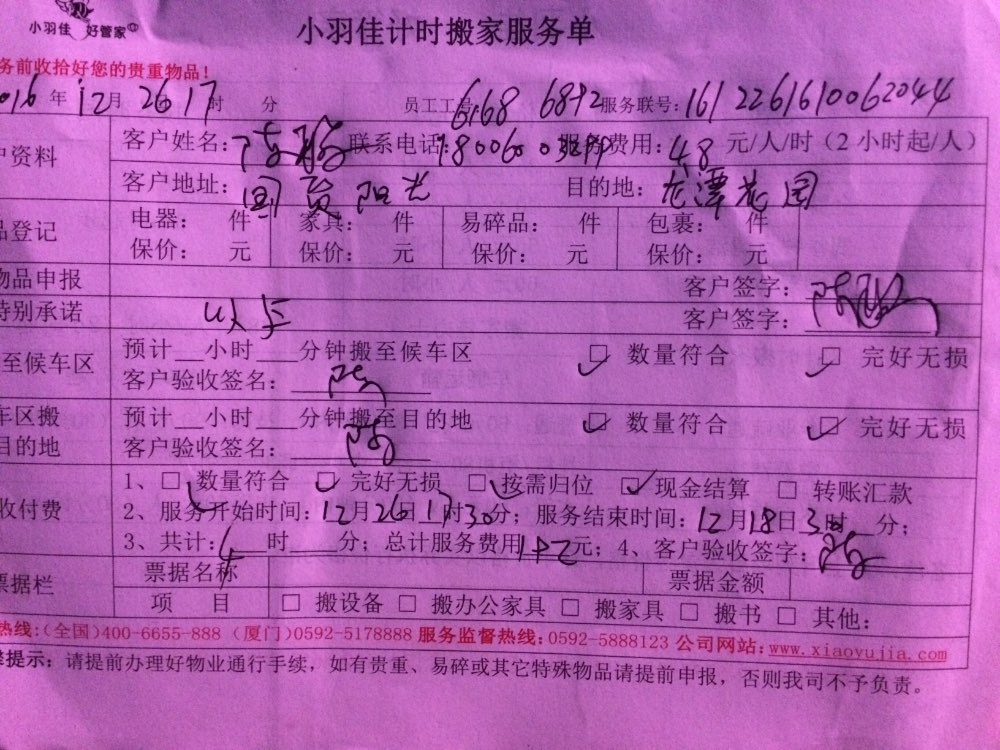 小羽佳 好管家
小羽佳计时搬家服务单
务前收拾好您的贵重物品！
016年12月26 17时 分 员工工号:6168 6892 服务联号:161226161006 2044
户资料 客户姓名: 陈 联系电话: 服务费用:48元/人/时（2小时起/人）
客户地址: 国贸阳光 目的地: 龙潭花园
品登记 电器: 件 家具: 件 易碎品: 件 包裹: 件
保价: 元 保价: 元 保价: 元 保价: 元
物品申报 客户签字: 陈
特别承诺 客户签字:
至候车区 预计__小时___分钟搬至候车区 ☑ 数量符合 ☑ 完好无损
客户验收签名: 陈
车区搬 预计__小时___分钟搬至目的地 ☑ 数量符合 ☑ 完好无损
目的地 客户验收签名: 陈
收付费 1、☑ 数量符合 ☑ 完好无损 ☑ 按需归位 ☑ 现金结算 □ 转账汇款
2、服务开始时间: 12月26日17时30分；服务结束时间: 12月18日3时___分；
3、共计: 4时___分；总计服务费用 元；4、客户验收签字: 陈
票据栏 票据名称 票据金额
项 目 □ 搬设备 □ 搬办公家具 □ 搬家具 □ 搬书 □ 其他:
热线:(全国)400-6655-888（厦门)0592-5178888 服务监督热线:0592-5888123 公司网站:www.xiaoyujia.com
提示: 请提前办理好物业通行手续，如有贵重、易碎或其它特殊物品请提前申报，否则我司不予负责。